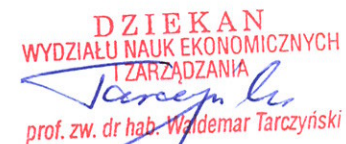 DZIEKAN
WYDZIAŁU NAUK EKONOMICZNYCH
I ZARZĄDZANIA
prof. zw. dr hab. Waldemar Tarczyński